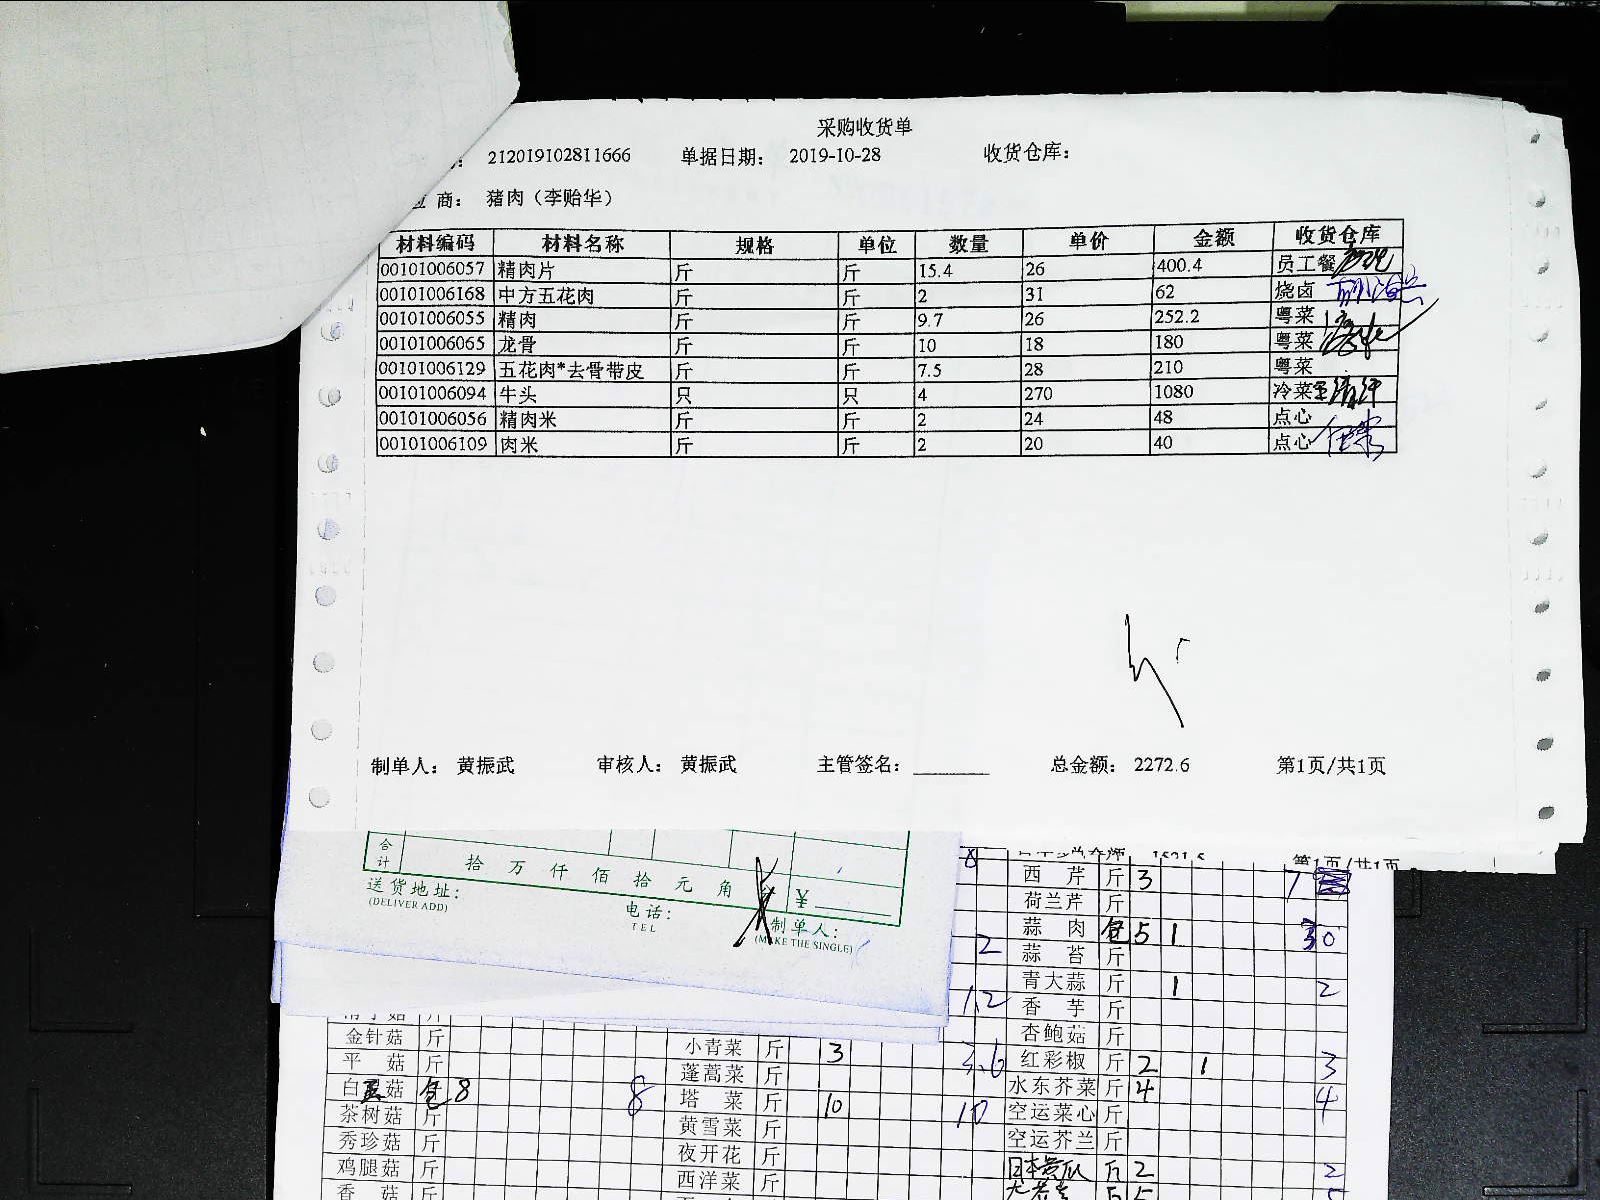 采购收货单
212019102811666 单据日期： 2019-10-28 收货仓库：
商： 猪肉（李贻华）
材料编码 材料名称 规格 单位 数量 单价 金额 收货仓库
00101006057 精肉片 斤 斤 15.4 26 400.4 员工餐
00101006168 中方五花肉 斤 斤 2 31 62 烧卤
00101006055 精肉 斤 斤 9.7 26 252.2 粤菜
00101006065 龙骨 斤 斤 10 18 180 粤菜
00101006129 五花肉*去骨带皮 斤 斤 7.5 28 210 粤菜
00101006094 牛头 只 只 4 270 1080 冷菜
00101006056 精肉米 斤 斤 2 24 48 点心
00101006109 肉米 斤 斤 2 20 40 点心
制单人： 黄振武 审核人： 黄振武 主管签名： 总金额： 2272.6 第1页/共1页
合计 拾 万 仟 佰 拾 元 角 ¥
送货地址：
(DELIVER ADD)
电话：
TEL
制单人：
(MAKE THE SINGLE)
第1页/共1页
8 西芹 斤 3 7
荷兰芹 斤
蒜肉 包 5 1 30
2 蒜苔 斤
青大蒜 斤 1 2
1.2 香芋 斤
杏鲍菇 斤
金针菇 斤 小青菜 斤 3 3.6 红彩椒 斤 2 1 3
平菇 斤 蓬蒿菜 斤 水东芥菜 斤 4 4
白 菇 包 8 8 塔菜 斤 10 10 空运菜心 斤
茶树菇 斤 黄雪菜 斤 空运芥兰 斤
秀珍菇 斤 夜开花 斤 日本黄瓜 斤 2 2
鸡腿菇 斤 西洋菜 斤 5
香菇 斤